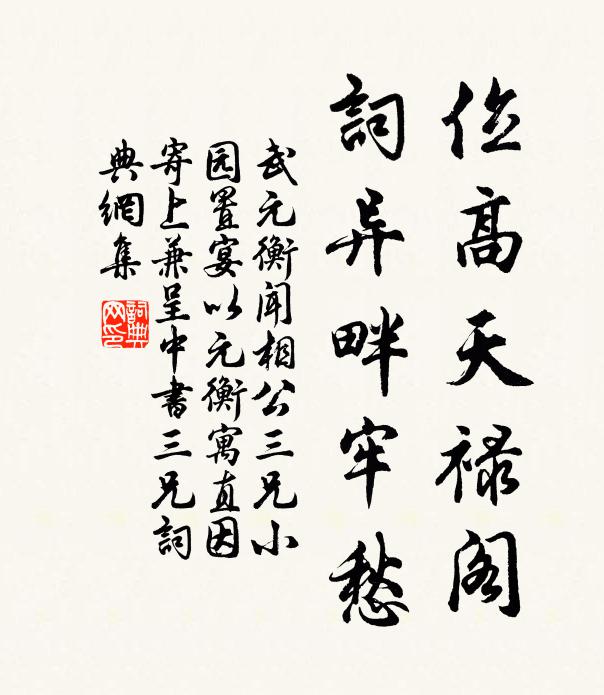 位高天禄阁
詞异畔牢愁
武元衡闻相公三兄小
园置宴以元衡寓直因
寄上兼呈中書三兄詞
典網集
詞典
网印